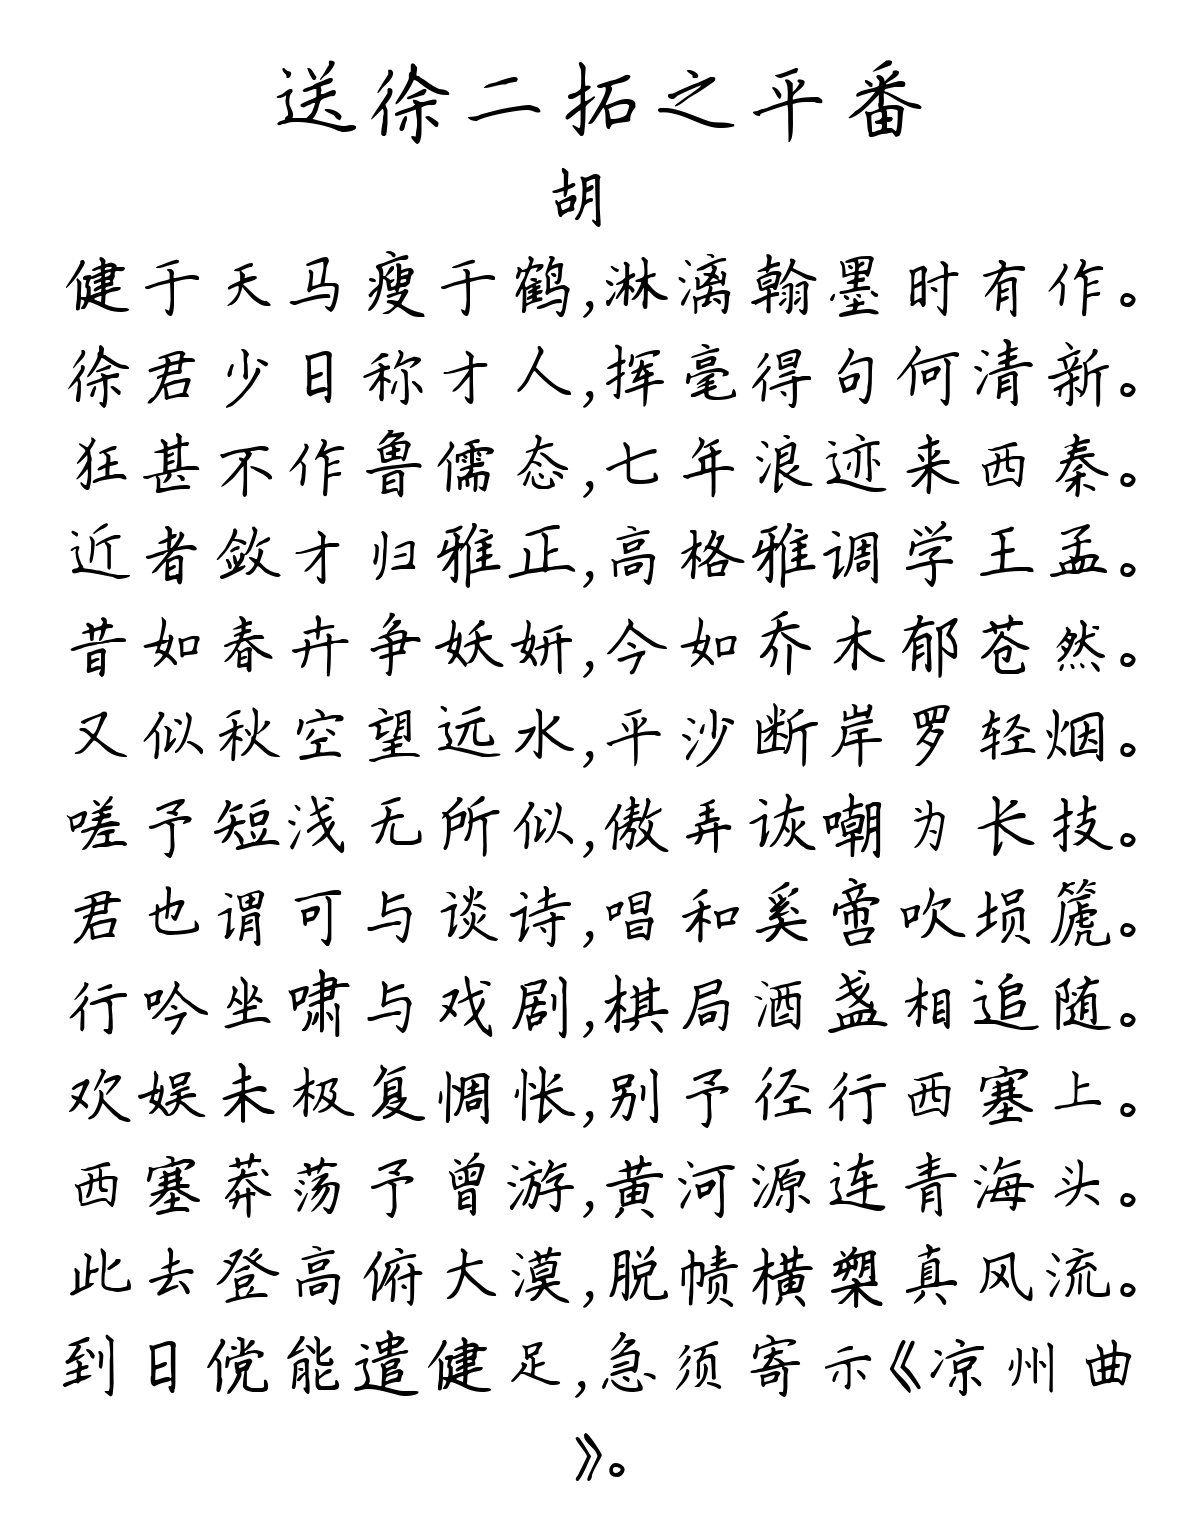 送徐二拓之平番
胡
健于天马瘦于鹤,淋漓翰墨时有作。
徐君少日称才人,挥毫得句何清新。
狂甚不作鲁儒态,七年浪迹来西秦。
近者敛才归雅正,高格雅调学王孟。
昔如春卉争妖妍,今如乔木郁苍然。
又似秋空望远水,平沙断岸罗轻烟。
嗟予短浅无所似,傲弄诙嘲为长技。
君也谓可与谈诗,唱和奚啻吹埙篪。
行吟坐啸与戏剧,棋局酒盏相追随。
欢娱未极复惆怅,别予径行西塞上。
西塞莽荡予曾游,黄河源连青海头。
此去登高俯大漠,脱帻横槊真风流。
到日傥能遣健足,急须寄示《凉州曲
》。